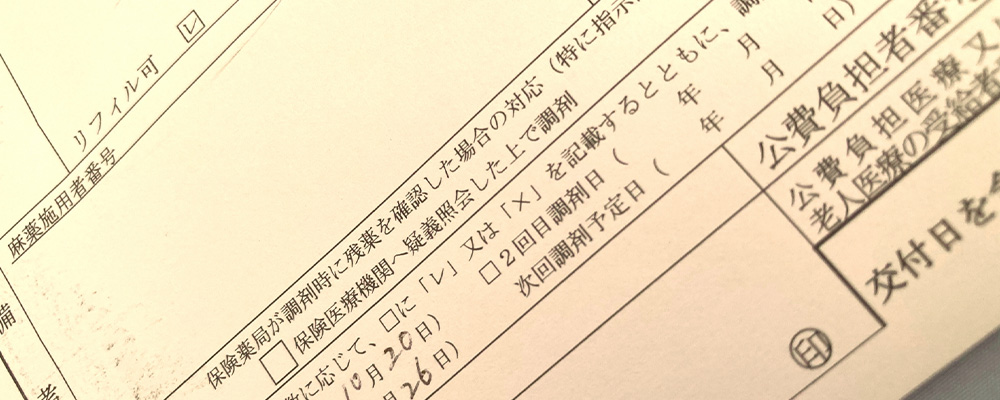 リフイル可 ☑
麻薬施用者番号
備
考
保険薬局が調剤時に残薬を確認した場合の対応(特に指示
□保険医療機関へ疑義照会した上で調剤
に応じて、□に「レ」又は「×」を記載するとともに、調
10月20日) □2回目調剤日( 年 月 日)
月26日) 次回調剤予定日( 年 月
公費負担者番
公費負担医療又
老人医療の受給者
交付日を
印